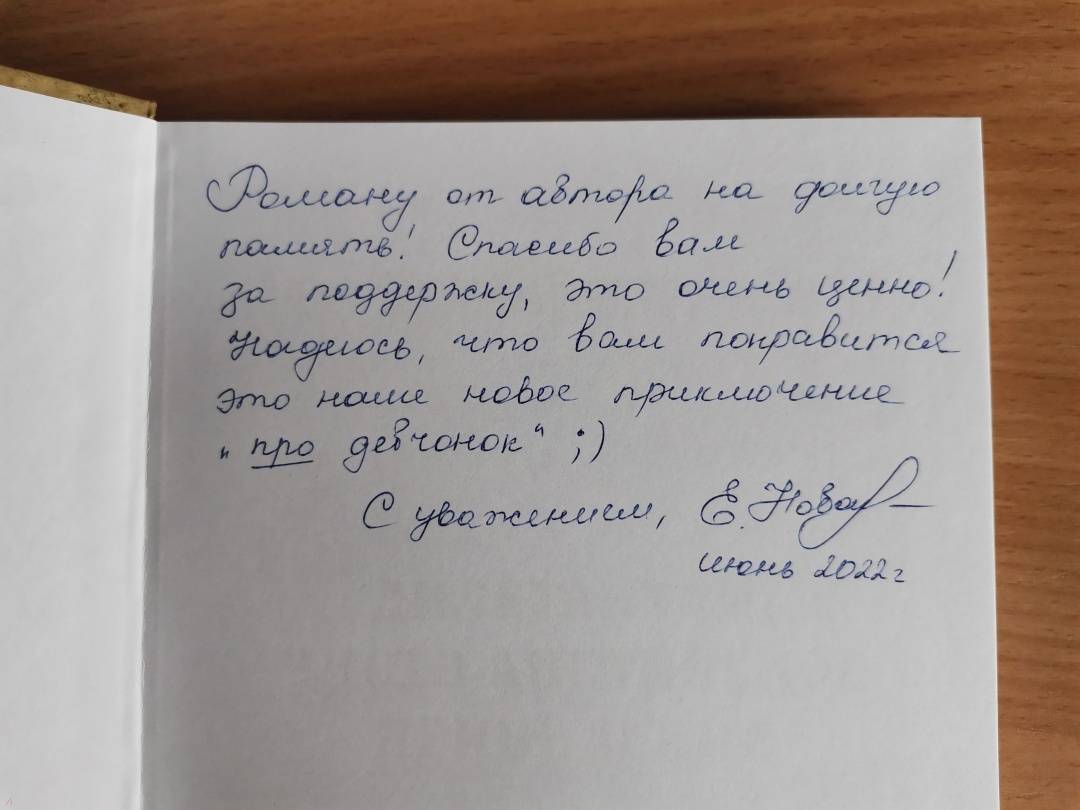 Роману от автора на долгую
память! Спасибо вам
за поддержку, это очень ценно!
Надеюсь, что вам понравится
это наше новое приключение
„про девчонок“ ;)
С уважением, Е.
июнь 2022г